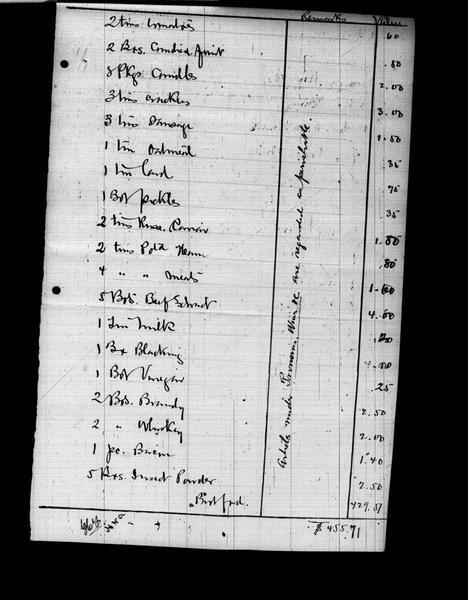 Remarks Value
2 tins tomatoes 60
2 Bxs. Candied fruit .80
8 Pkgs. Candles 2.00
3 tins crackers 3.00
3 tins Sausage 1.50
1 tin Oatmeal 35
1 tin Lard 75
1 Bot pickles 35
2 tins Russ. Caviar 1.00
2 tins Pott'd Ham .80
4 " " meats
5 Bots. Beef Extract 4.00
1 Tin Milk
1 Bx Blacking
1 Bot Vinegar .25
2 Bots. Brandy 2.50
2 " Whiskey 2.00
1 pc. Bacon 1.40
5 Bxs. Insect Powder 2.50
Brot fwd. 429.51
$ 455.71
Articles under Provisions, Wine &c are regarded as perishable.